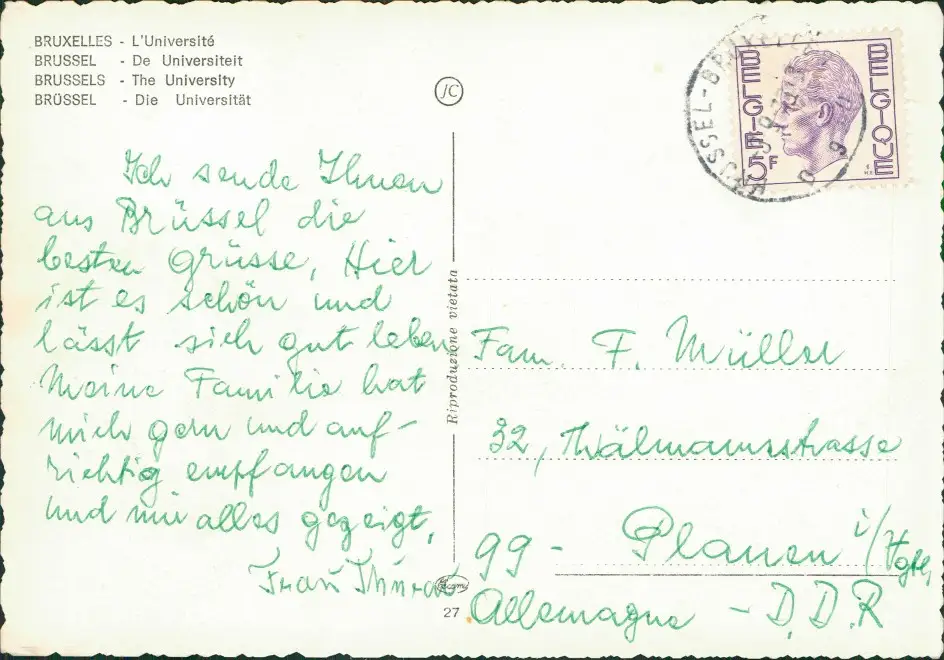 BRUXELLES - L'Université
BRUSSEL - De Universiteit
BRUSSELS - The University
BRÜSSEL - Die Universität
JC
BELGIE 5F
BELGIQUE
Ich sende Ihnen
aus Brüssel die
besten Grüsse, Hier
ist es schön und
lässt sich gut leben
Meine Familie hat
mich gern und auf-
richtig empfangen
und mir alles gezeigt,
Frau
Riproduzione vietata
27
Fam. F. Müller
32, Thälmannstrasse
99 - Plauen i/Vgtl,
Allemagne - D.D.R